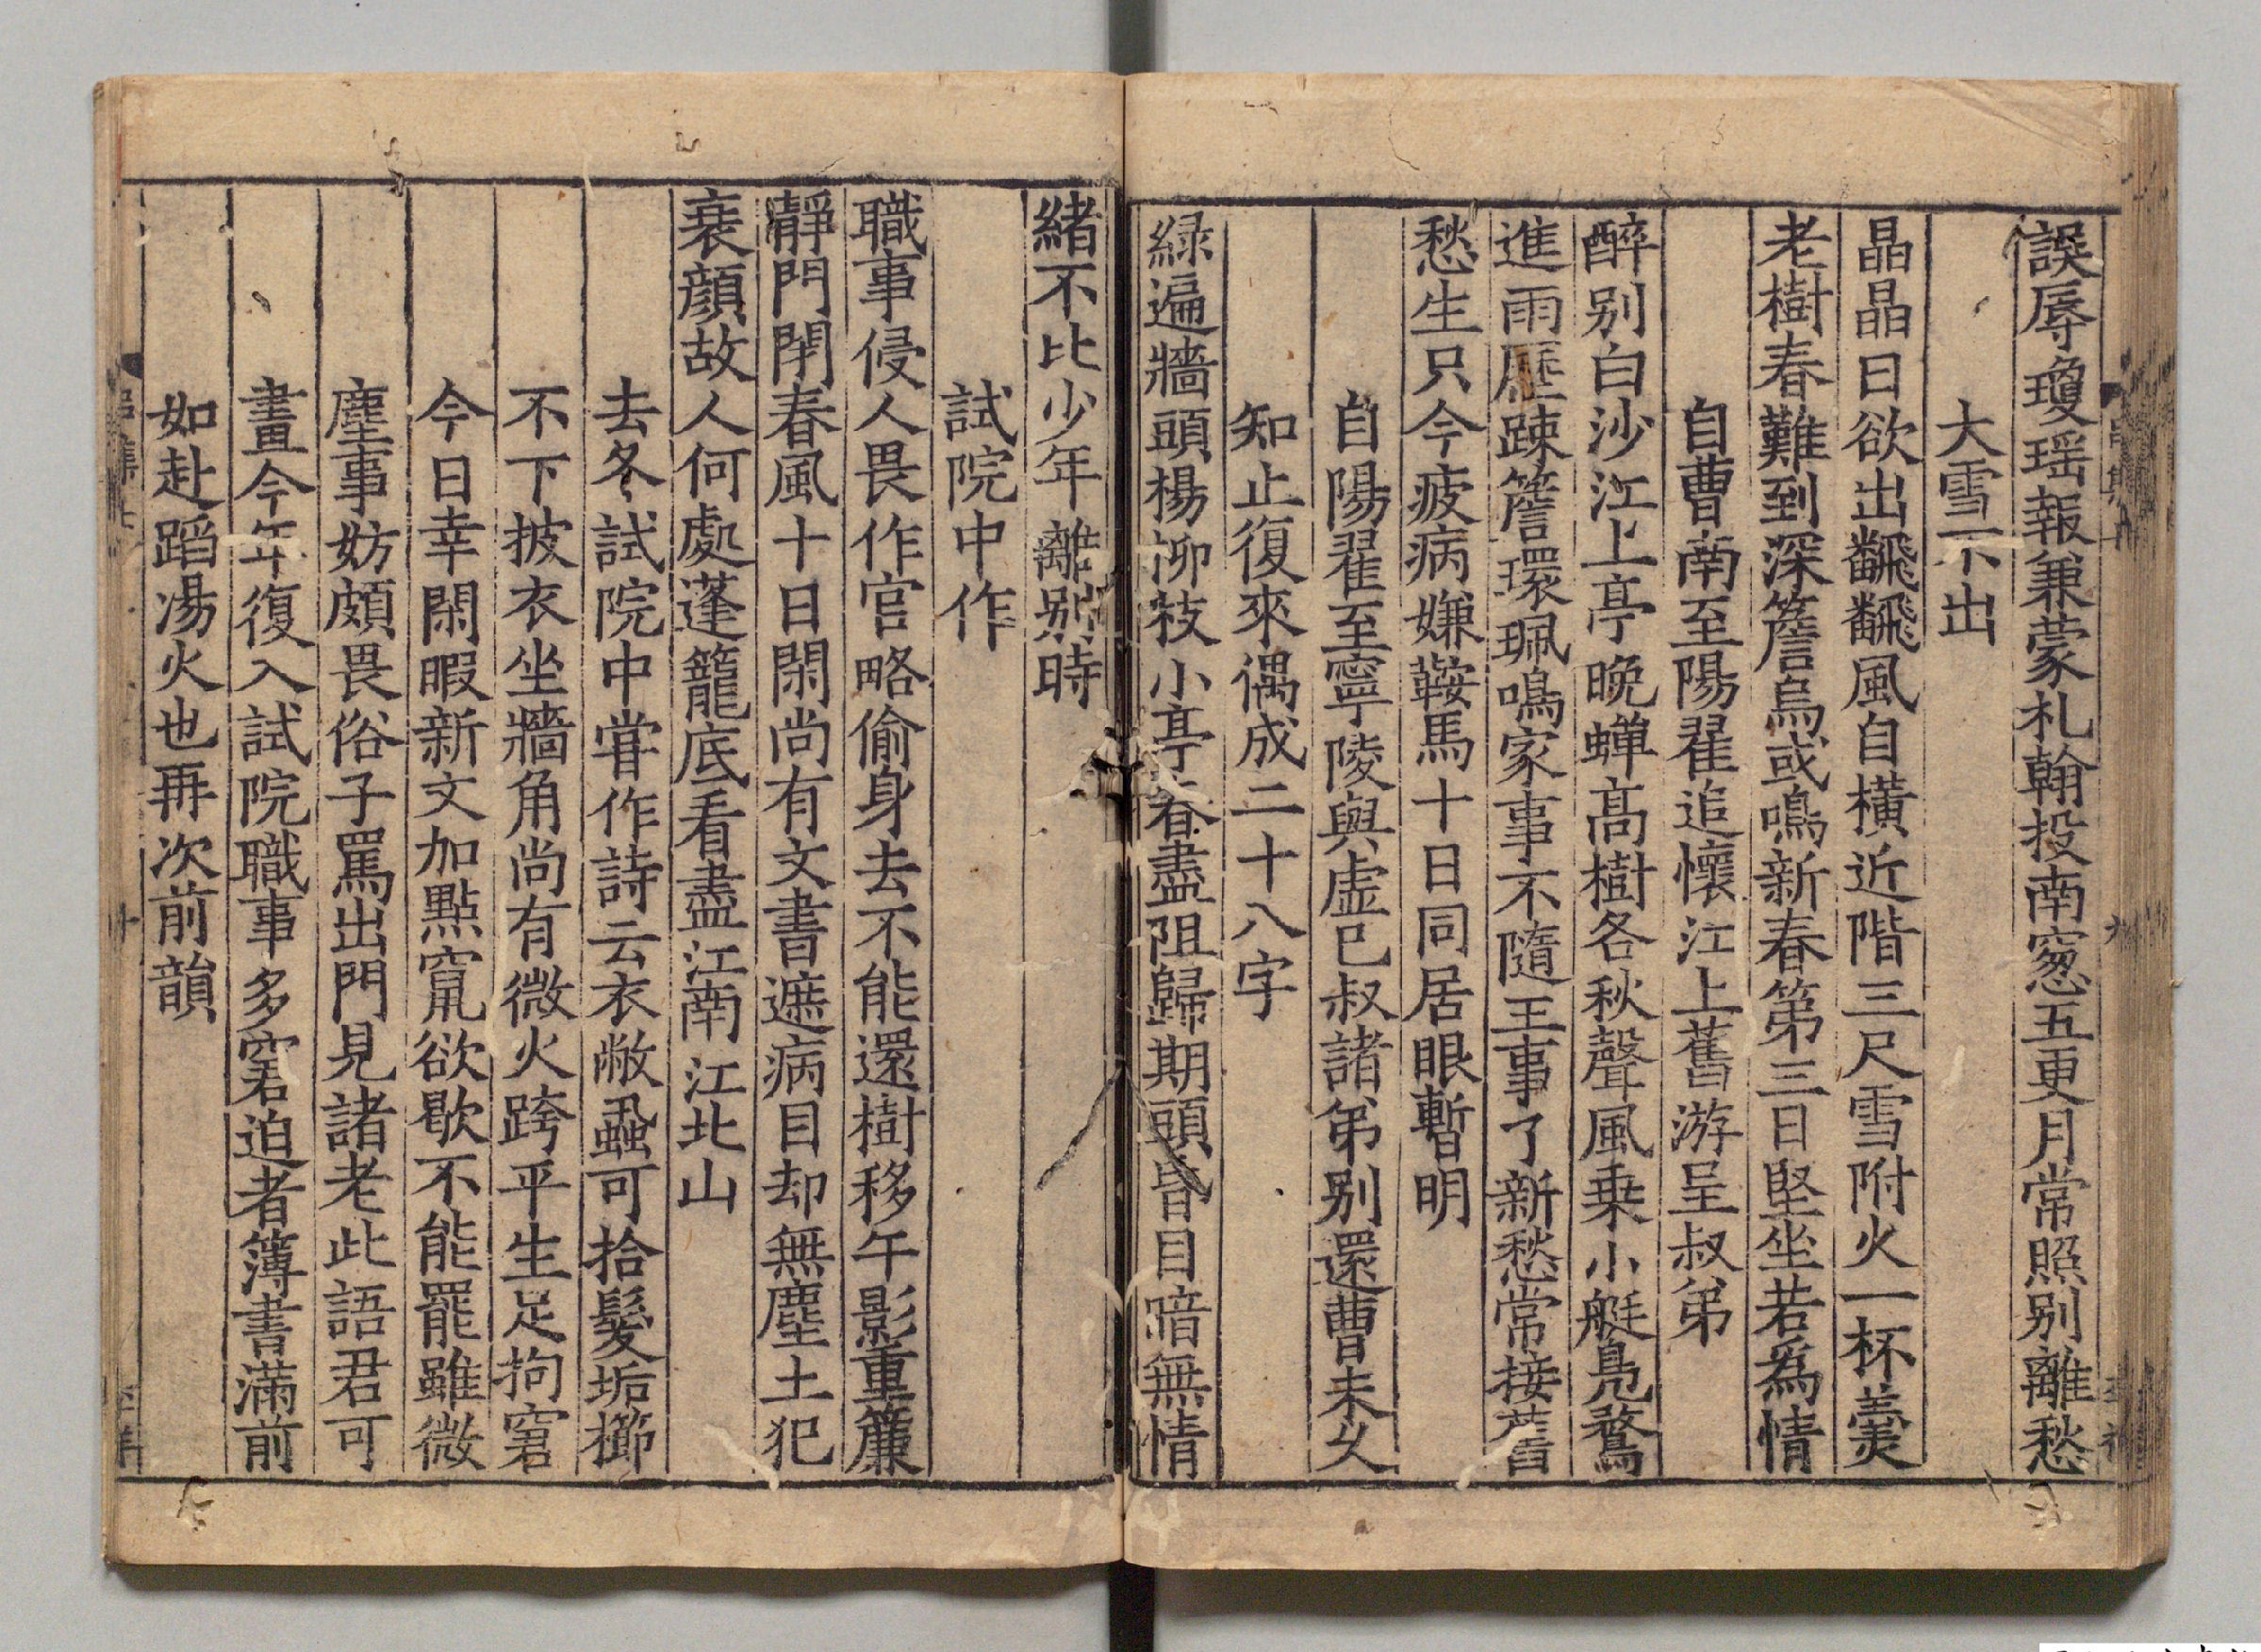 誤辱瓊瑶報兼蒙札翰投南窓五更月常照别離愁
大雪不出
晶晶日欲出飜飜風自橫近階三尺雪附火一杯羮
老樹春難到深簷烏或鳴新春第三日堅坐若爲情
自曹南至陽翟追懷江上舊游呈叔弟
醉别白沙江上亭晩蟬髙樹各秋聲風乗小艇鳬鶩
進雨歴踈簷環珮鳴家事不隨王事了新愁常接舊
愁生只今疲病嫌鞍馬十日同居眼暫明
自陽翟至寧陵與虚己叔諸弟别還曹未乆
知止復來偶成二十八字
緑遍牆頭楊柳枝小亭春盡阻歸期頭昏目暗無情
緒不比少年離别時
試院中作
職事侵人畏作官略偷身去不能還樹移午影重簾
靜門閉春風十日閑尚有文書遮病目却無塵土犯
衰顔故人何處蓬籠底看盡江南江北山
去冬試院中甞作詩云衣敝蝨可拾髮垢櫛
不下披衣坐牆角尚有微火跨平生足拘窘
今日幸閑暇新文加點竄欲歇不能罷雖微
塵事妨頗畏俗子罵出門見諸老此語君可
畫今年復入試院職事多窘迫者簿書滿前
如赴蹈湯火也再次前韻